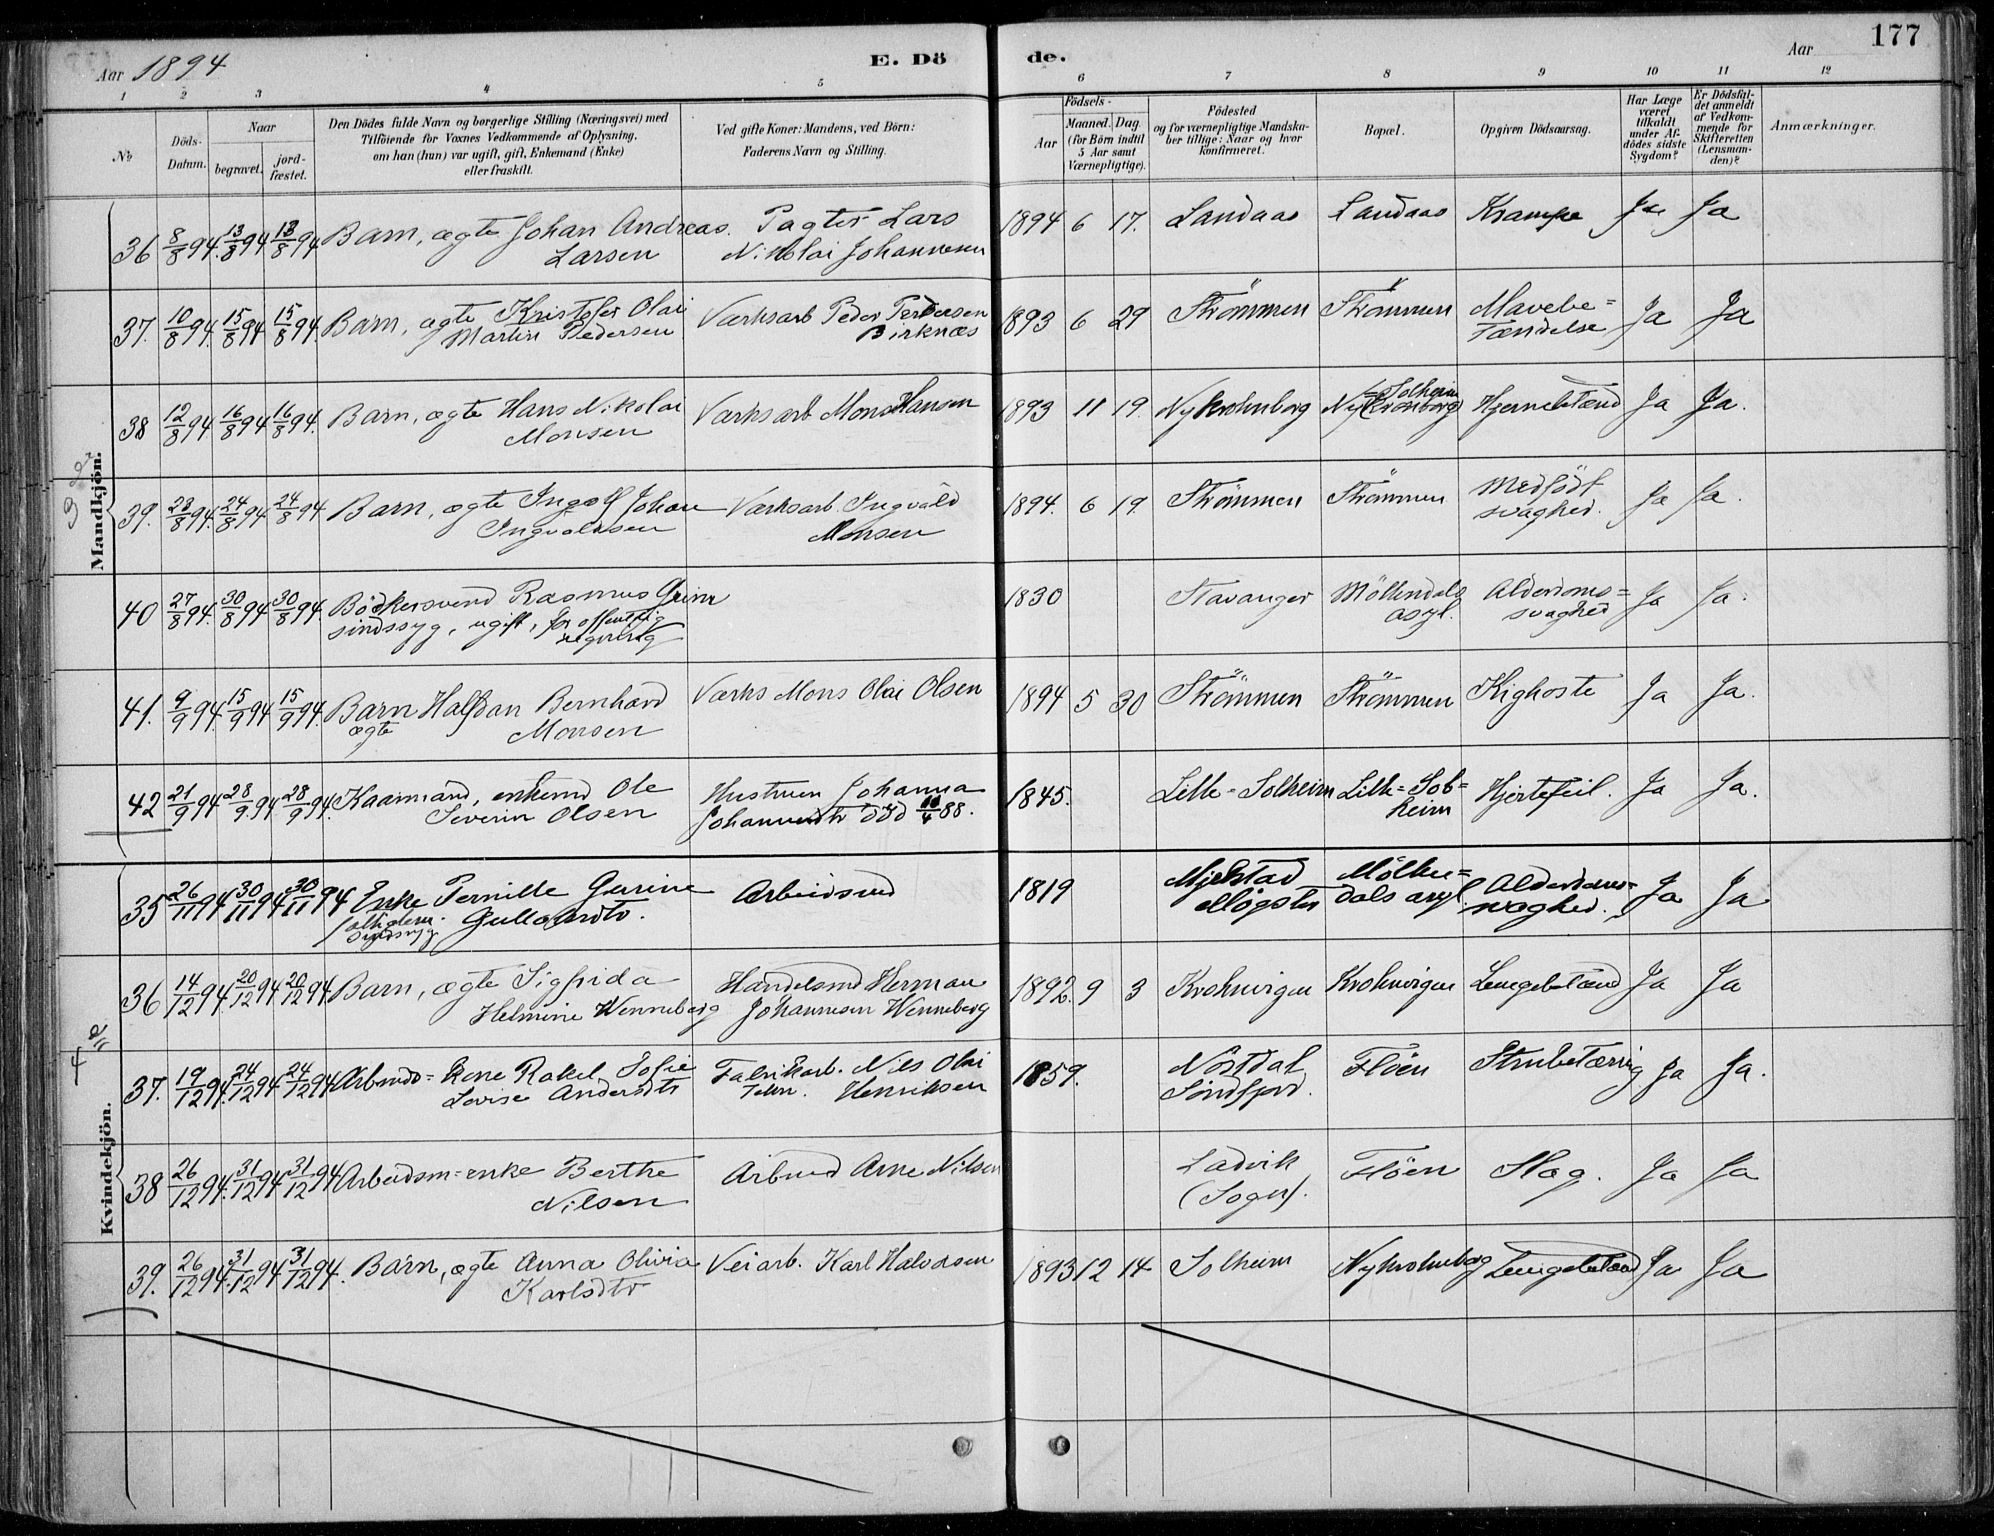 Aar 1894
E. Döde.
Aar
177
1 2 3 4 5 6 7 8 9 10 11 12
No
Döds-Datum.
Naar
begravet.
jord-fæstet.
Den Dödes fulde Navn og borgerlige Stilling (Næringsvei) med
Tilföiende for Voxnes Vedkommende af Oplysning,
om han (hun) var ugift, gift, Enkemand (Enke)
eller fraskilt.
Ved gifte Koner: Mandens, ved Börn:
Faderens Navn og Stilling.
Födsels-
Aar
Maaned. Dag.
(for Börn indtil
5 Aar samt
Værnepligtige).
Födested
og for værnepligtige Mandska-
ber tillige: Naar og hvor
konfirmeret.
Bopæl.
Opgiven Dödsaarsag.
Har Læge
været
tilkaldt
under Af-
dödes sidste
Sygdom?
Er Dödsfal-
det anmeldt
af Vedkom-
mende for
Skifteretten
(Lensman-
den)?
Anmærkninger.
Mandkjön.
36 8/8 94. 13/8 94 13/8 94 Barn, ægte Johan Andreas Larsen Pagter Lars Nikolai Johannesen 1894 6 17. Landaas Landaas Krampe Ja Ja
37. 10/8 94. 15/8 94 15/8 94. Barn, ægte Kristofer Olai Martin Pedersen Værksarb Peder Pedersen Birknæs 1893 6 29 Strömmen Strömmen Mavebe=tændelse Ja Ja
38 12/8 94 16/8 94 16/8 94. Barn, ægte Hans Nikolai Monsen Værksarb Mons Hansen 1893 11 19. Ny Krohnborg Ny Kronborg Solheim Hjernebetænd Ja Ja.
39. 23/8 94. 24/8 94 24/8 94 Barn, ægte Ingolf Johan Ingvaldsen Værksarb. Ingvald Monsen 1894. 6 19 Strömmen Strömmen Medfödt svaghed. Ja Ja.
40 27/8 94. 30/8 94 30/8 94. Bödkersvend Rasmus Grim sindssyg, ugift, for offentlig regning 1830 Stavanger Möllendals asyl. Alderdoms=svaghed Ja Ja.
41. 9/9 94. 15/9 94 15/9 94. Barn ægte Halfdan Bernhard Monsen Værks Mons Olai Olsen 1894 5 30 Strömmen Strömmen Kighoste Ja Ja.
42 21/9 94 28/9. 94 28/9 94. Kaarmand, enkemd Ole Severin Olsen Hustruen Johanna Johannesdtr död 11/4 88. 1845. Lille=Solheim Lille=Sol=heim Hjertefeil. Ja Ja.
Kvindekjön.
35 26/11 94 30/11 94 30/11 94 Enke Pernille Gurine Gullaksdtr. sindssyg Arbeidsmd 1819 Mjelstad Mögster Möllen=dals asyl Alderdoms=svaghed. Ja Ja
36 14/12 94 20/12 94 20/12 94 Barn, ægte Sigfrida Helmine Wenneberg Handelsmd Herman Johannesen Wenneberg 1892. 9 3 Krohnvigen Krohnvigen Lungebetænd Ja Ja
37. 19/12 94. 24/12 94 24/12 94 Arbmds=kone Rakel Sofie Lovise Andersdtr Fabrikarb. Nils Olai Henriksen 1859. Nöstdal Söndfjord. Flöen Strubetæring Ja Ja.
38 26/12 94. 31/12 94 31/12 94 Arbeidsm=enke Berthe Nilsen Arbmd Arne Nilsen Ladvik (Sogn). Flöen Slag. Ja Ja
39. 26/12 94. 31/12 94 31/12 94. Barn, ægte Anna Olivia Karlsdtr Veiarb. Karl Halvorsen 1893 12 14 Solheim Nykrohnborg Lungebetænd Ja Ja